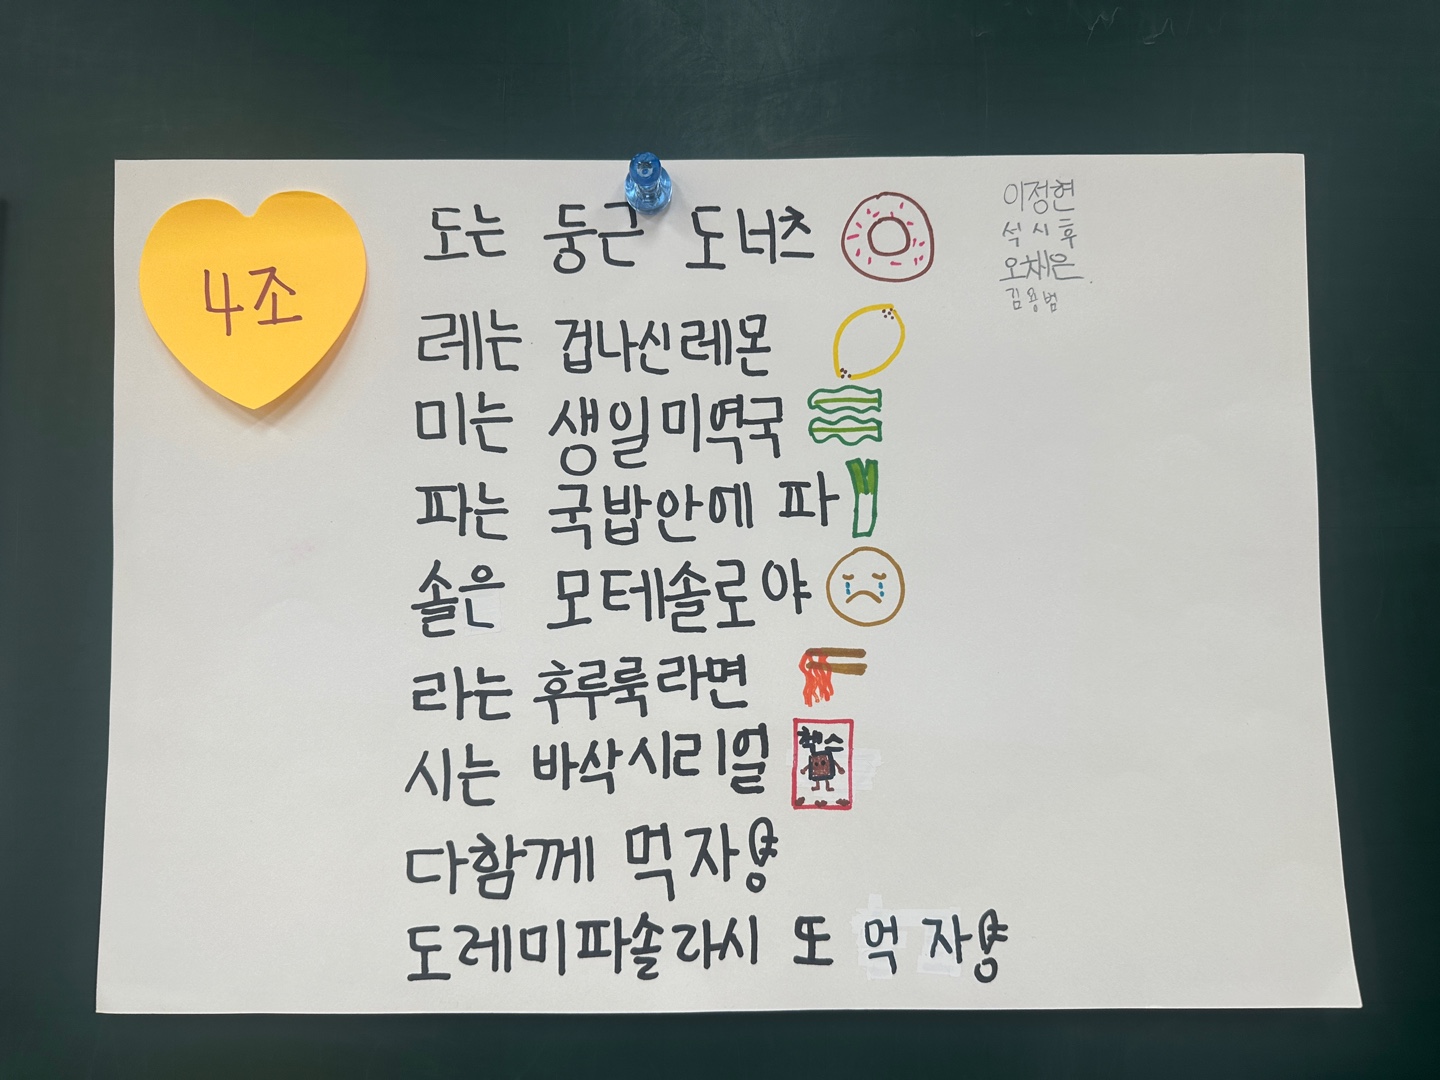 4조
도는 둥근 도너츠
레는 겁나신레몬
미는 생일미역국
파는 국밥안에 파
솔은 모테솔로야
라는 후루룩라면
시는 바삭시리얼
다함께 먹자양
도레미파솔라시 또 먹자양
이정현
석시후
오채은
김용범